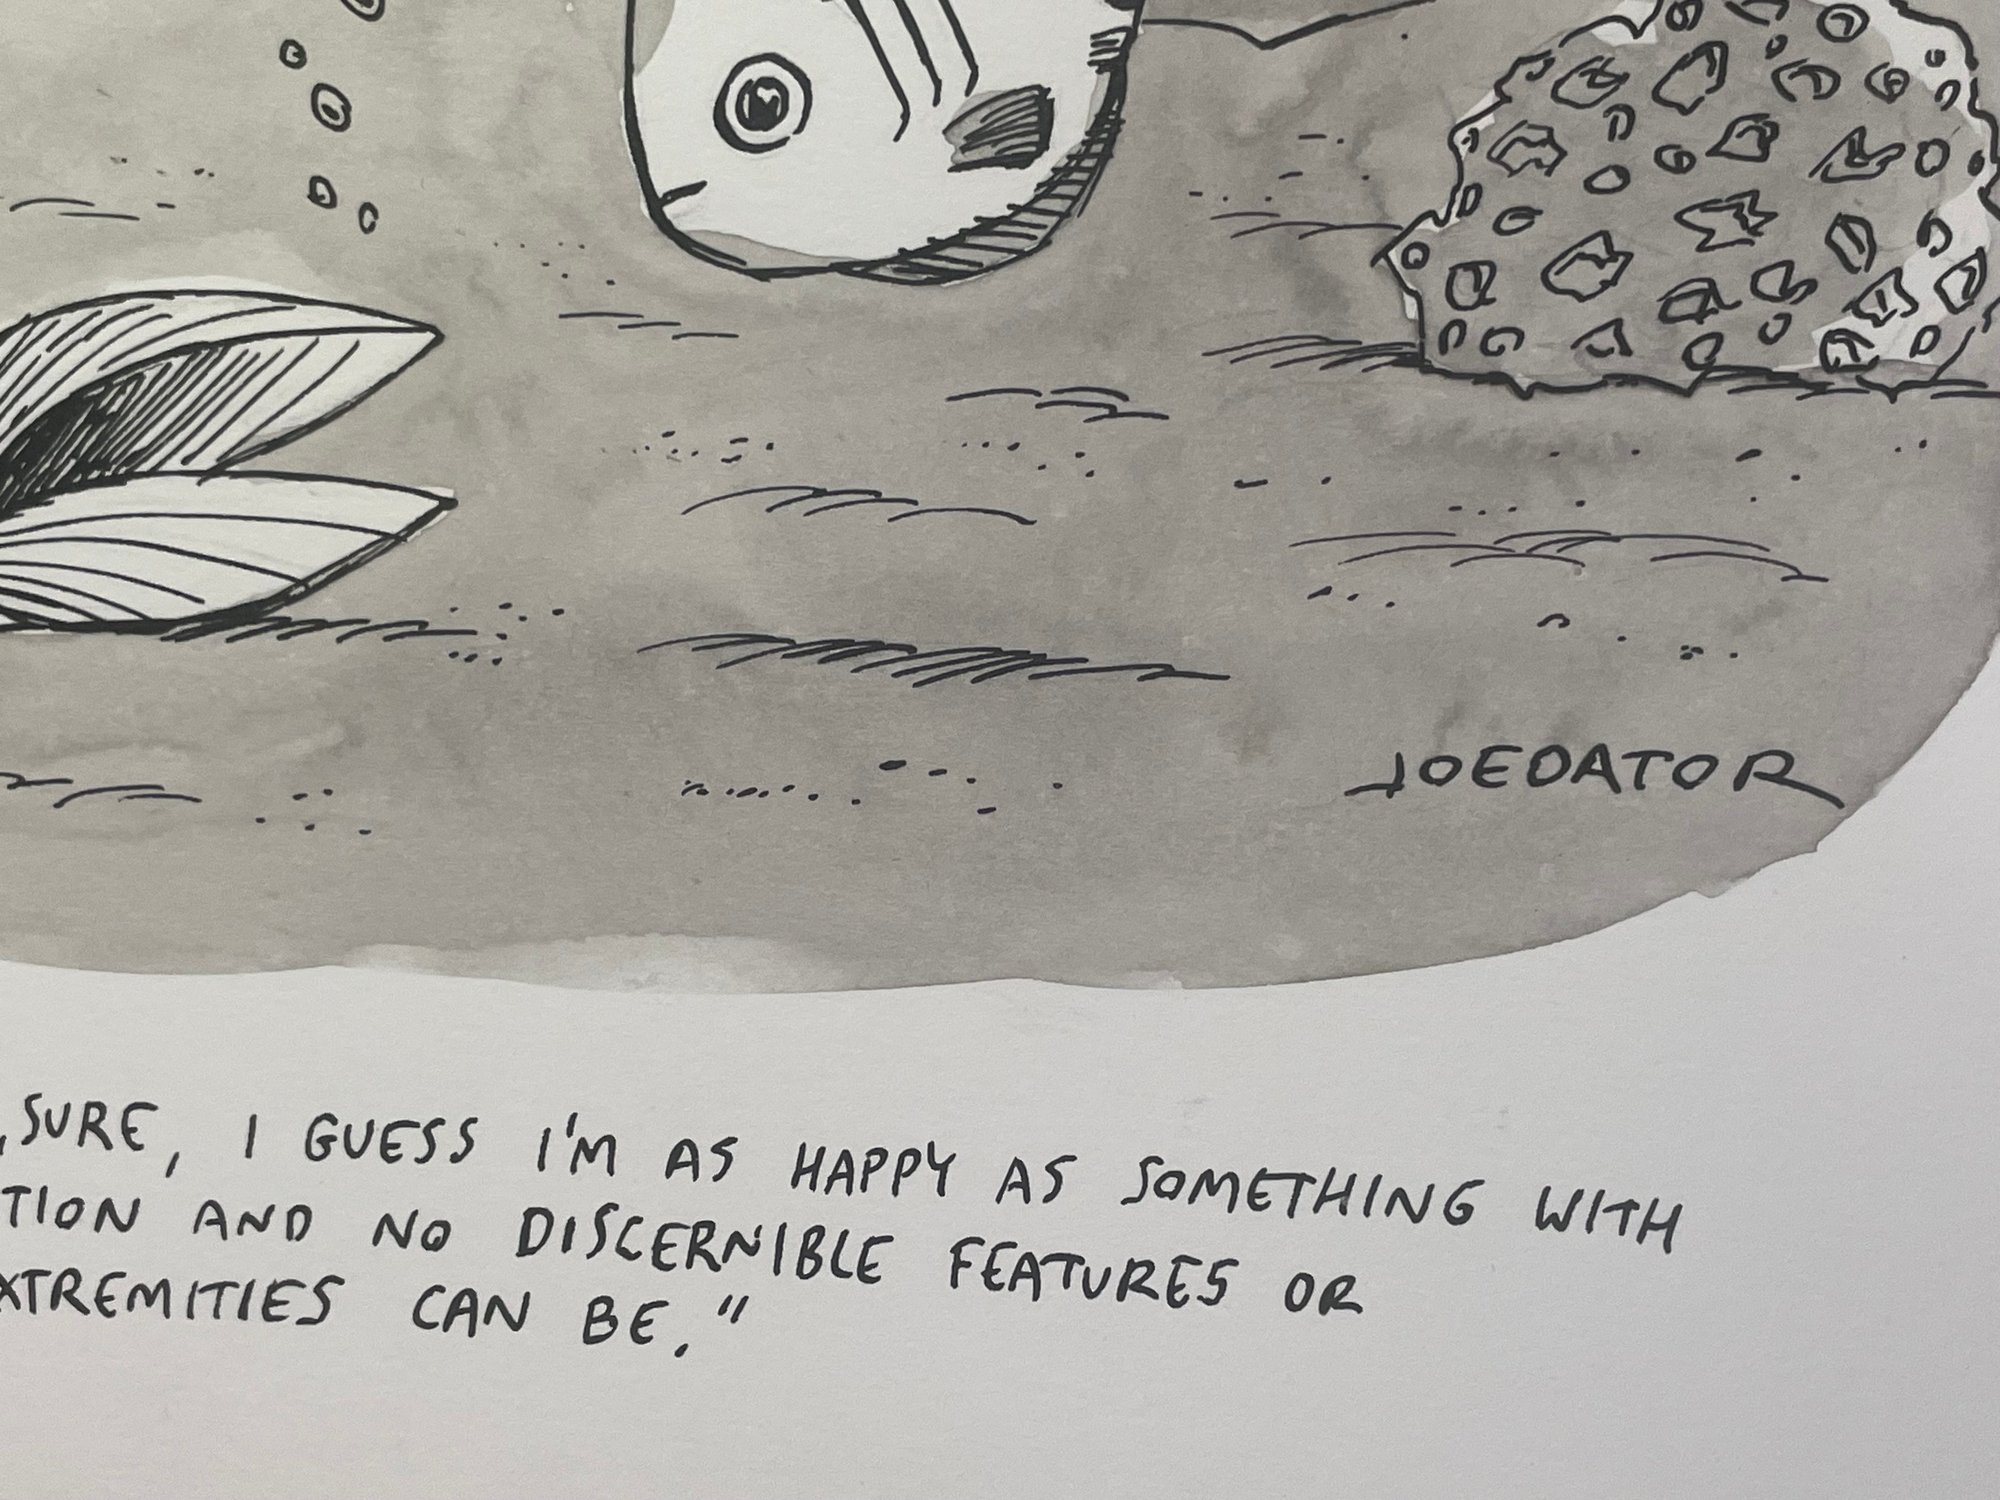 JOEDATOR
, SURE, I GUESS I'M AS HAPPY AS SOMETHING WITH
TION AND NO DISCERNIBLE FEATURES OR
XTREMITIES CAN BE."